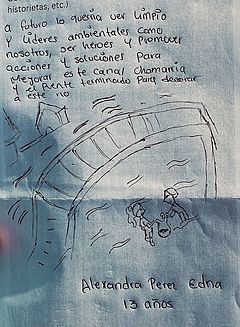 historietas, etc.)
a futuro lo quería ver limpio
y líderes ambientales como
nosotros, ser heroes y promover
acciones y soluciones para
mejorar este canal chomaria
y el puente terminado para decorar
a este no
Alexandra Perez Edna
13 años